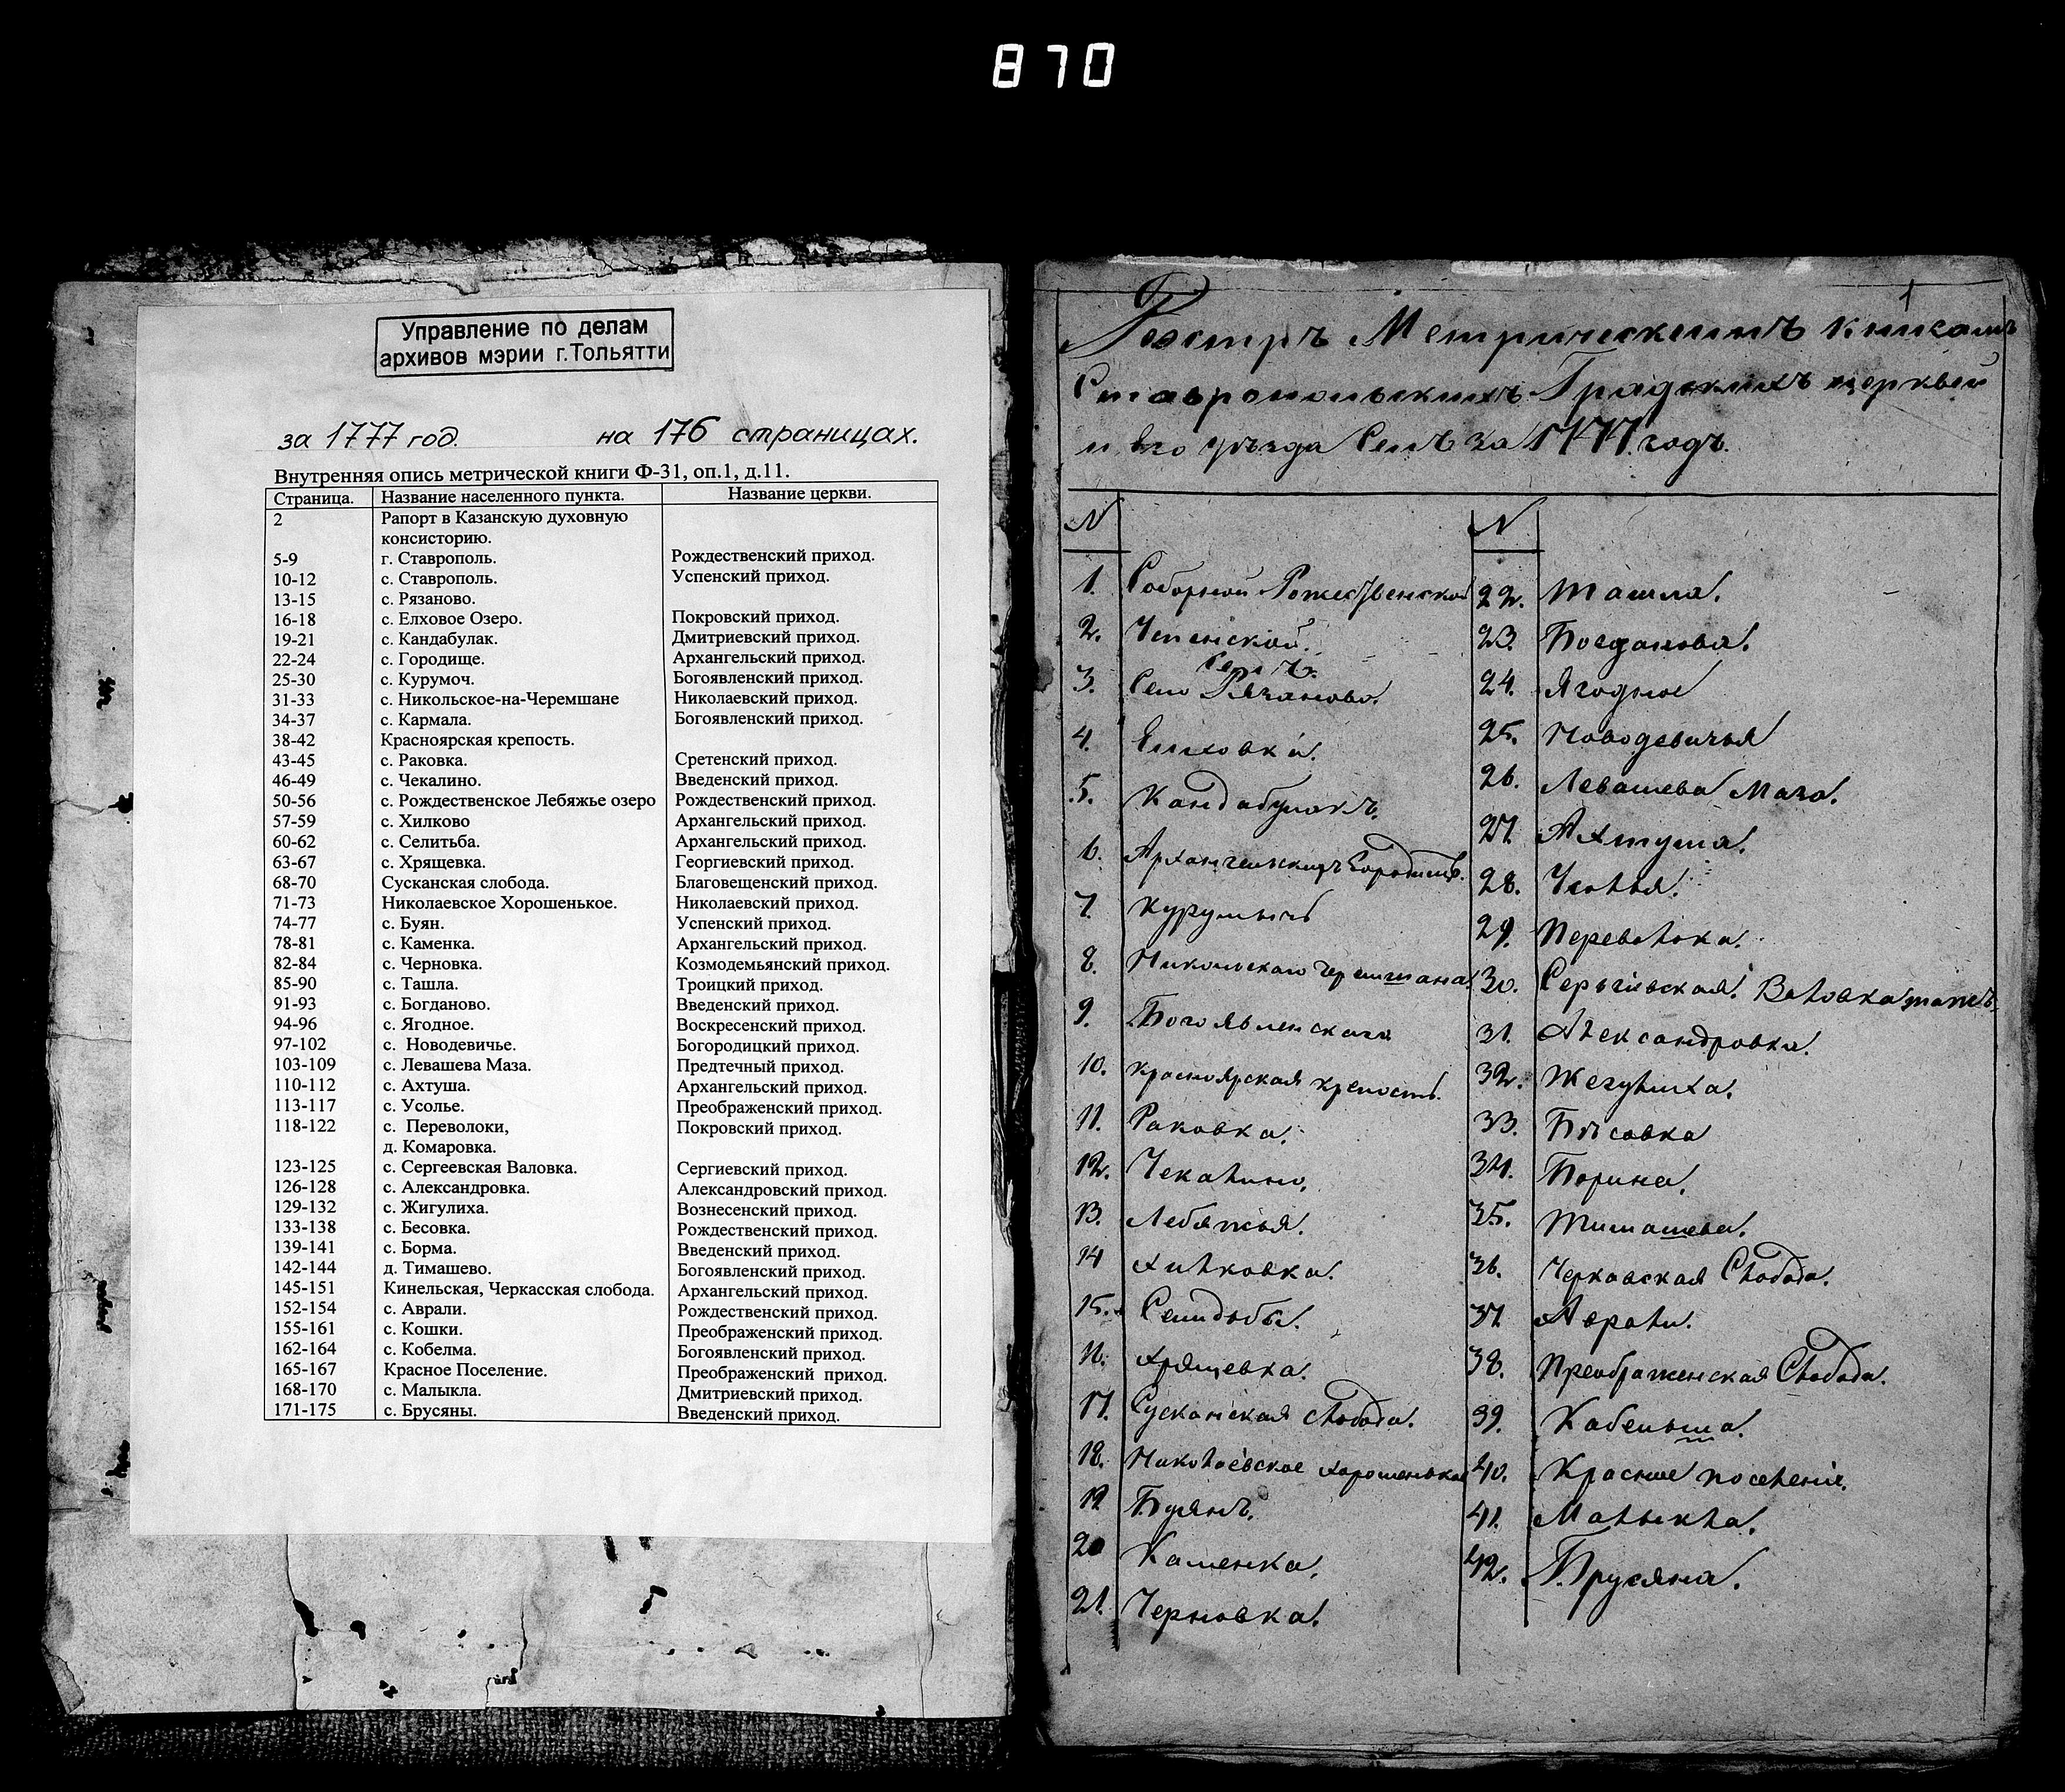 870
Управление по делам
архивов мэрии г.Тольятти
за 1777 год. на 176 страницах.
Внутренняя опись метрической книги Ф-31, оп.1, д.11.
Страница. Название населенного пункта. Название церкви.
2 Рапорт в Казанскую духовную
консисторию.
5-9 г. Ставрополь. Рождественский приход.
10-12 с. Ставрополь. Успенский приход.
13-15 с. Рязаново.
16-18 с. Елховое Озеро. Покровский приход.
19-21 с. Кандабулак. Дмитриевский приход.
22-24 с. Городище. Архангельский приход.
25-30 с. Курумоч. Богоявленский приход.
31-33 с. Никольское-на-Черемшане Николаевский приход.
34-37 с. Кармала. Богоявленский приход.
38-42 Красноярская крепость.
43-45 с. Раковка. Сретенский приход.
46-49 с. Чекалино. Введенский приход.
50-56 с. Рождественское Лебяжье озеро Рождественский приход.
57-59 с. Хилково Архангельский приход.
60-62 с. Селитьба. Архангельский приход.
63-67 с. Хрящевка. Георгиевский приход.
68-70 Сусканская слобода. Благовещенский приход.
71-73 Николаевское Хорошенькое. Николаевский приход.
74-77 с. Буян. Успенский приход.
78-81 с. Каменка. Архангельский приход.
82-84 с. Черновка. Козмодемьянский приход.
85-90 с. Ташла. Троицкий приход.
91-93 с. Богданово. Введенский приход.
94-96 с. Ягодное. Воскресенский приход.
97-102 с. Новодевичье. Богородицкий приход.
103-109 с. Левашева Маза. Предтечный приход.
110-112 с. Ахтуша. Архангельский приход.
113-117 с. Усолье. Преображенский приход.
118-122 с. Переволоки, Покровский приход.
д. Комаровка.
123-125 с. Сергеевская Валовка. Сергиевский приход.
126-128 с. Александровка. Александровский приход.
129-132 с. Жигулиха. Вознесенский приход.
133-138 с. Бесовка. Рождественский приход.
139-141 с. Борма. Введенский приход.
142-144 д. Тимашево. Богоявленский приход.
145-151 Кинельская, Черкасская слобода. Архангельский приход.
152-154 с. Аврали. Рождественский приход.
155-161 с. Кошки. Преображенский приход.
162-164 с. Кобелма. Богоявленский приход.
165-167 Красное Поселение. Преображенский приход.
168-170 с. Малыкла. Дмитриевский приход.
171-175 с. Брусяны. Введенский приход.
1
Реэстръ Метрическимъ книгамъ
Ставропольскихъ Градскихъ церквей
и его уѣзда Селъ за 1777. годъ.
N
1. Соборной Рожественской
2. Успенской.
Селъ
3. Село Рязаново.
4. Елховка.
5. Кандабулакъ.
6. Архангельскихъ Городищь.
7. Курумычь
8. Никольскаго Черемшана
9. Богоявленскаго
10. Красноярская крепость.
11. Раковка.
12. Чекалино.
13. Лебяжья.
14 Хилковка.
15. Селидьбы.
16. Хрящевка.
17. Сусканская слобода.
18. Николаевское Хорошенькое
19 Буянъ.
20 Каменка.
21. Черновка.
N
22. Ташла.
23. Богданова.
24. Ягодное
25. Новодевичья
26. Левашева Маза.
27. Ахтуша.
28. Усолья.
29. Переволока.
30. Серьгіевская. Валовка тожъ.
31. Александровка.
32. Жегулиха.
33. Бѣсовка
34. Борма.
35. Тимашева.
36. Черкасская Слобода.
37 Аврали.
38. Преображенская Слобода.
39. Кабельма.
40. Красное поселеніе.
41. Малыкла.
42. Брусяна.